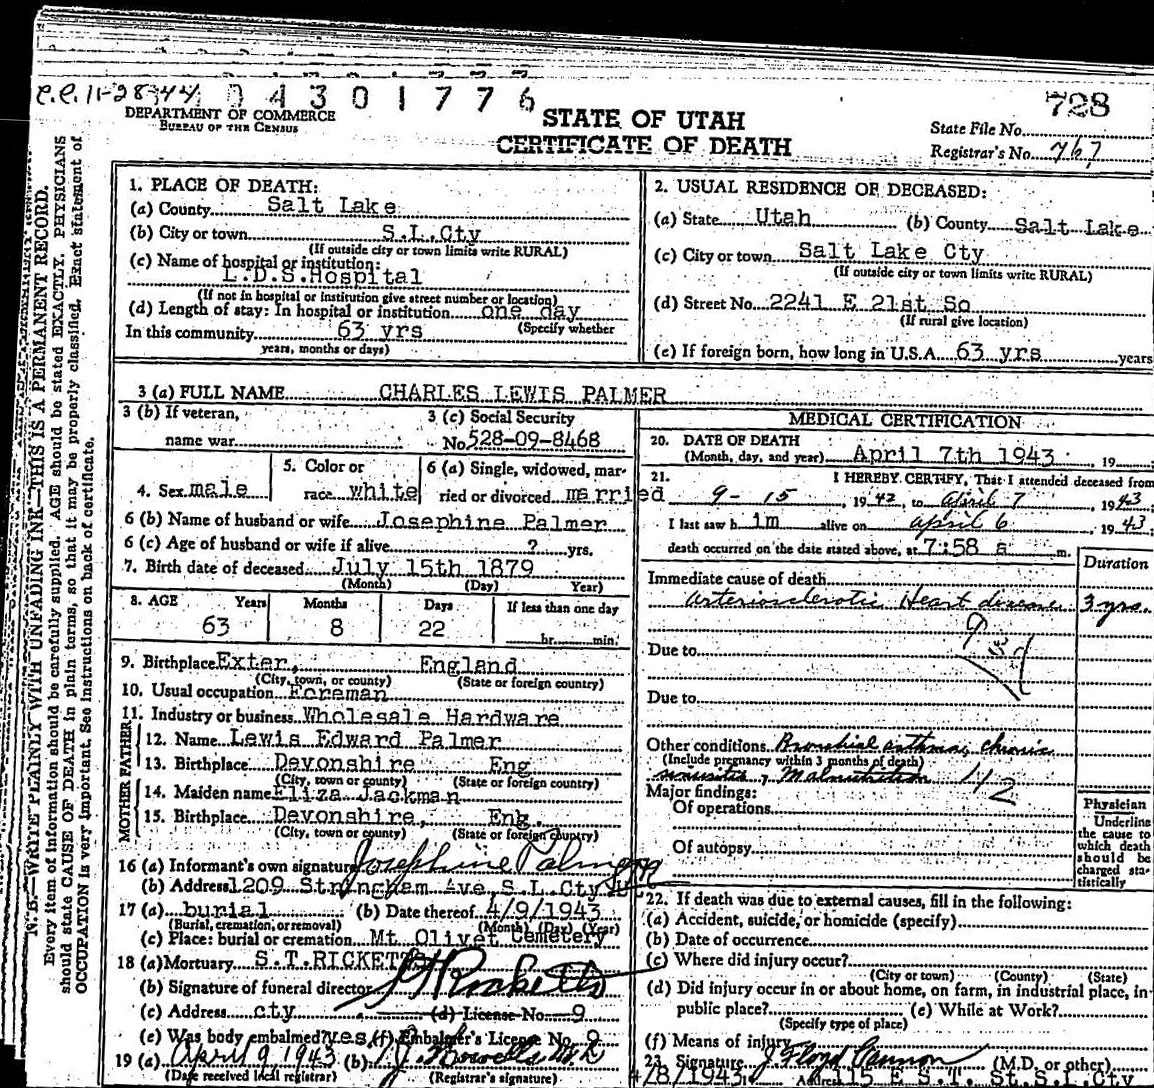 C.C. 11-28-44
0 4 3 0 1 7 7 6
728
DEPARTMENT OF COMMERCE
BUREAU OF THE CENSUS
STATE OF UTAH
CERTIFICATE OF DEATH
State File No.
Registrar's No. 767
N. B.—WRITE PLAINLY WITH UNFADING INK—THIS IS A PERMANENT RECORD.
Every item of information should be carefully supplied. AGE should be stated EXACTLY. PHYSICIANS
should state CAUSE OF DEATH in plain terms, so that it may be properly classified. Exact statement of
OCCUPATION is very important. See instructions on back of certificate.
1. PLACE OF DEATH:
(a) County Salt Lake
(b) City or town S.L.Cty
(If outside city or town limits write RURAL)
(c) Name of hospital or institution:
L.D.S.Hospital
(If not in hospital or institution give street number or location)
(d) Length of stay: In hospital or institution one day
(Specify whether
In this community 63 yrs
years, months or days)
2. USUAL RESIDENCE OF DECEASED:
(a) State Utah (b) County Salt Lake
(c) City or town Salt Lake Cty
(If outside city or town limits write RURAL)
(d) Street No. 2241 E 21st So
(If rural give location)
(e) If foreign born, how long in U.S.A. 63 yrs years
3 (a) FULL NAME CHARLES LEWIS PALMER
3 (b) If veteran,
name war
3 (c) Social Security
No. 528-09-8468
4. Sex male
5. Color or
race white
6 (a) Single, widowed, mar-
ried or divorced married
6 (b) Name of husband or wife Josephine Palmer
6 (c) Age of husband or wife if alive ? yrs.
7. Birth date of deceased July 15th 1879
(Month) (Day) Year)
8. AGE Years Months Days If less than one day
63 8 22 hr. min.
9. Birthplace Exter, England
(City, town, or county) (State or foreign country)
10. Usual occupation Foreman
11. Industry or business Wholesale Hardware
FATHER
12. Name Lewis Edward Palmer
13. Birthplace Devonshire Eng
(City, town or county) (State or foreign country)
MOTHER
14. Maiden name Eliza Jackman
15. Birthplace Devonshire, Eng.
(City, town or county) (State or foreign country)
16 (a) Informant's own signature Josephine Palmer
(b) Address 1209 Stringham Ave S.L.Cty
17 (a) burial (b) Date thereof 4/9/1943
(Burial, cremation, or removal) (Month) (Day) (Year)
(c) Place: burial or cremation Mt Olivet Cemetery
18 (a) Mortuary S.T.RICKETTS
(b) Signature of funeral director Ricketts
(c) Address cty (d) License No. 9
(e) Was body embalmed? yes (f) Embalmer's License No. 9
19 (a) April 9 1943 (b)
(Date received local registrar) (Registrar's signature)
MEDICAL CERTIFICATION
20. DATE OF DEATH
(Month, day, and year) April 7th 1943 19
21. I HEREBY CERTIFY, That I attended deceased from
9-15 1942, to April 7, 1943
I last saw h im alive on april 6 1943;
death occurred on the date stated above, at 7:58 a m.
Duration
Immediate cause of death
Arteriosclerotic Heart disease 3 yrs.
Due to
Due to
Other conditions Bronchial asthma, chronic
(Include pregnancy within 3 months of death)
sinusitis, Malnutrition 112
Major findings:
Of operations
Of autopsy
Physician
Underline
the cause to
which death
should be
charged sta-
tistically
22. If death was due to external causes, fill in the following:
(a) Accident, suicide, or homicide (specify)
(b) Date of occurrence
(c) Where did injury occur?
(City or town) (County) (State)
(d) Did injury occur in or about home, on farm, in industrial place, in
public place? (e) While at Work?
(Specify type of place)
(f) Means of injury
23. Signature J Floyd Cannon (M.D. or other)
4/8/1943 Address 115 E S.T. St S.L.Cty